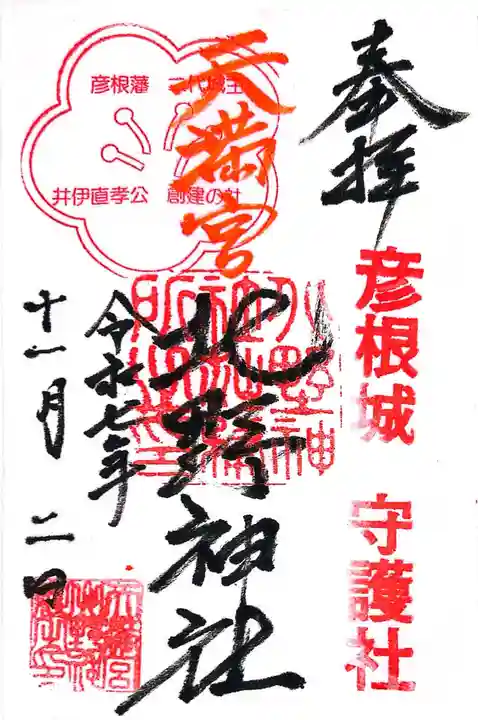 奉拝
彦根城 守護社
天満宮
北野神社
彦根藩 二代城主
井伊直孝公 創建の社
令和七年
十一月 二日